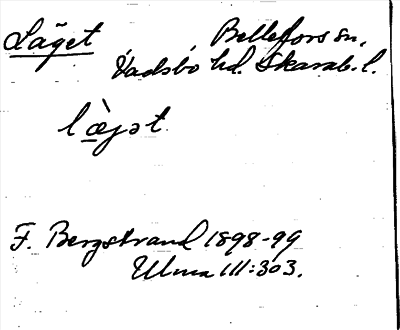 Läget Bellefors sn,
Vadsbo hd. Skarab. l.
læ̀jət
F. Bergstrand 1898-99
Ulma 111:303.